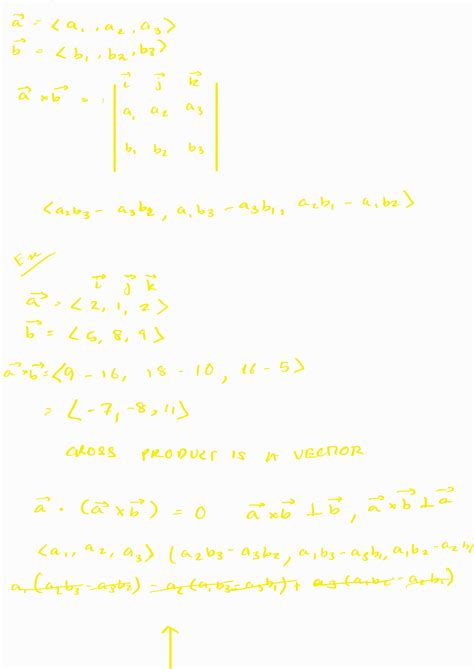 a⃗ = <a₁, a₂, a₃>
b⃗ = <b₁, b₂, b₃>
i⃗ j⃗ k⃗
a⃗ × b⃗ = a₁ a₂ a₃
b₁ b₂ b₃
<a₂b₃ - a₃b₂, a₁b₃ - a₃b₁, a₂b₁ - a₁b₂>
Ex
i⃗ j⃗ k⃗
a⃗ = <2, 1, 2>
b⃗ = <5, 8, 9>
a⃗×b⃗ = <9 - 16, 18 - 10, 16 - 5>
= <-7, -8, 11>
CROSS PRODUCT IS A VECTOR
a⃗ · (a⃗ × b⃗) = 0 a⃗×b⃗ ⊥ b⃗, a⃗×b⃗ ⊥ a⃗
<a₁, a₂, a₃> (a₂b₃ - a₃b₂, a₁b₃ - a₃b₁, a₁b₂ - a₂b₁
a₁(a₂b₃ - a₃b₂) - a₂(a₁b₃ - a₃b₁) + a₃(a₁b₂ - a₂b₁)